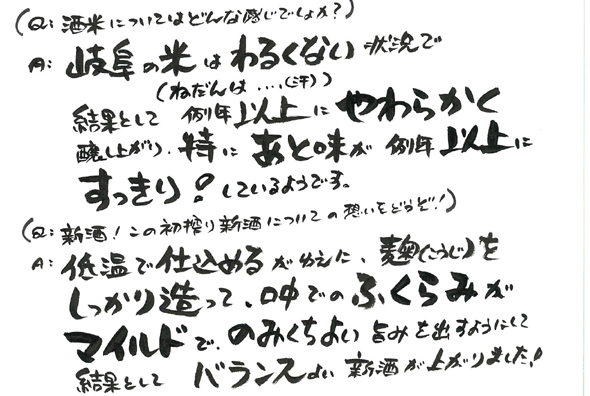 (Q: 酒米についてはどんな感じでしょか?)
A: 岐阜の米はわるくない状況で
(ねだんは....(汗))
結果として 例年以上にやわらかく
醸し上がり、特にあと味が 例年以上に
すっきり!しているようです。
(Q: 新酒!この初搾り新酒についての想いをどうぞ!)
A: 低温で仕込めるがゆえに、麹(こうじ)を
しっかり造って、口中でのふくらみが
マイルドで、のみくちよい旨みを出すようにして
結果として バランスよい新酒が上がりました!